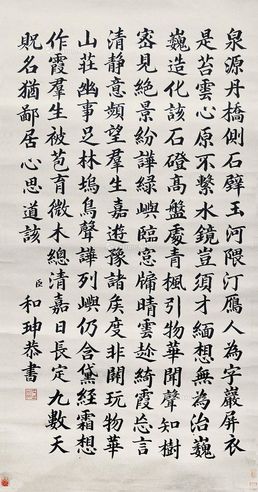 泉源丹橋側石壁玉河隈汀鴈人為字巖屏衣
是苔雲心原不繫水鏡豈須才緬想無為治巍
巍造化該石磴高盤處青楓引物華開聲知樹
密見絕景紛譁綠嶼臨窓牖晴雲趂綺霞忘言
清靜意頻望羣生嘉遊豫諸矦度非關玩物華
山莊幽事足林塢鳥聲譁列嶼仍含黛經霜想
作霞羣生被苞育微木總清嘉日長定九數天
貺名猶鄙居心思道該
臣和珅恭書